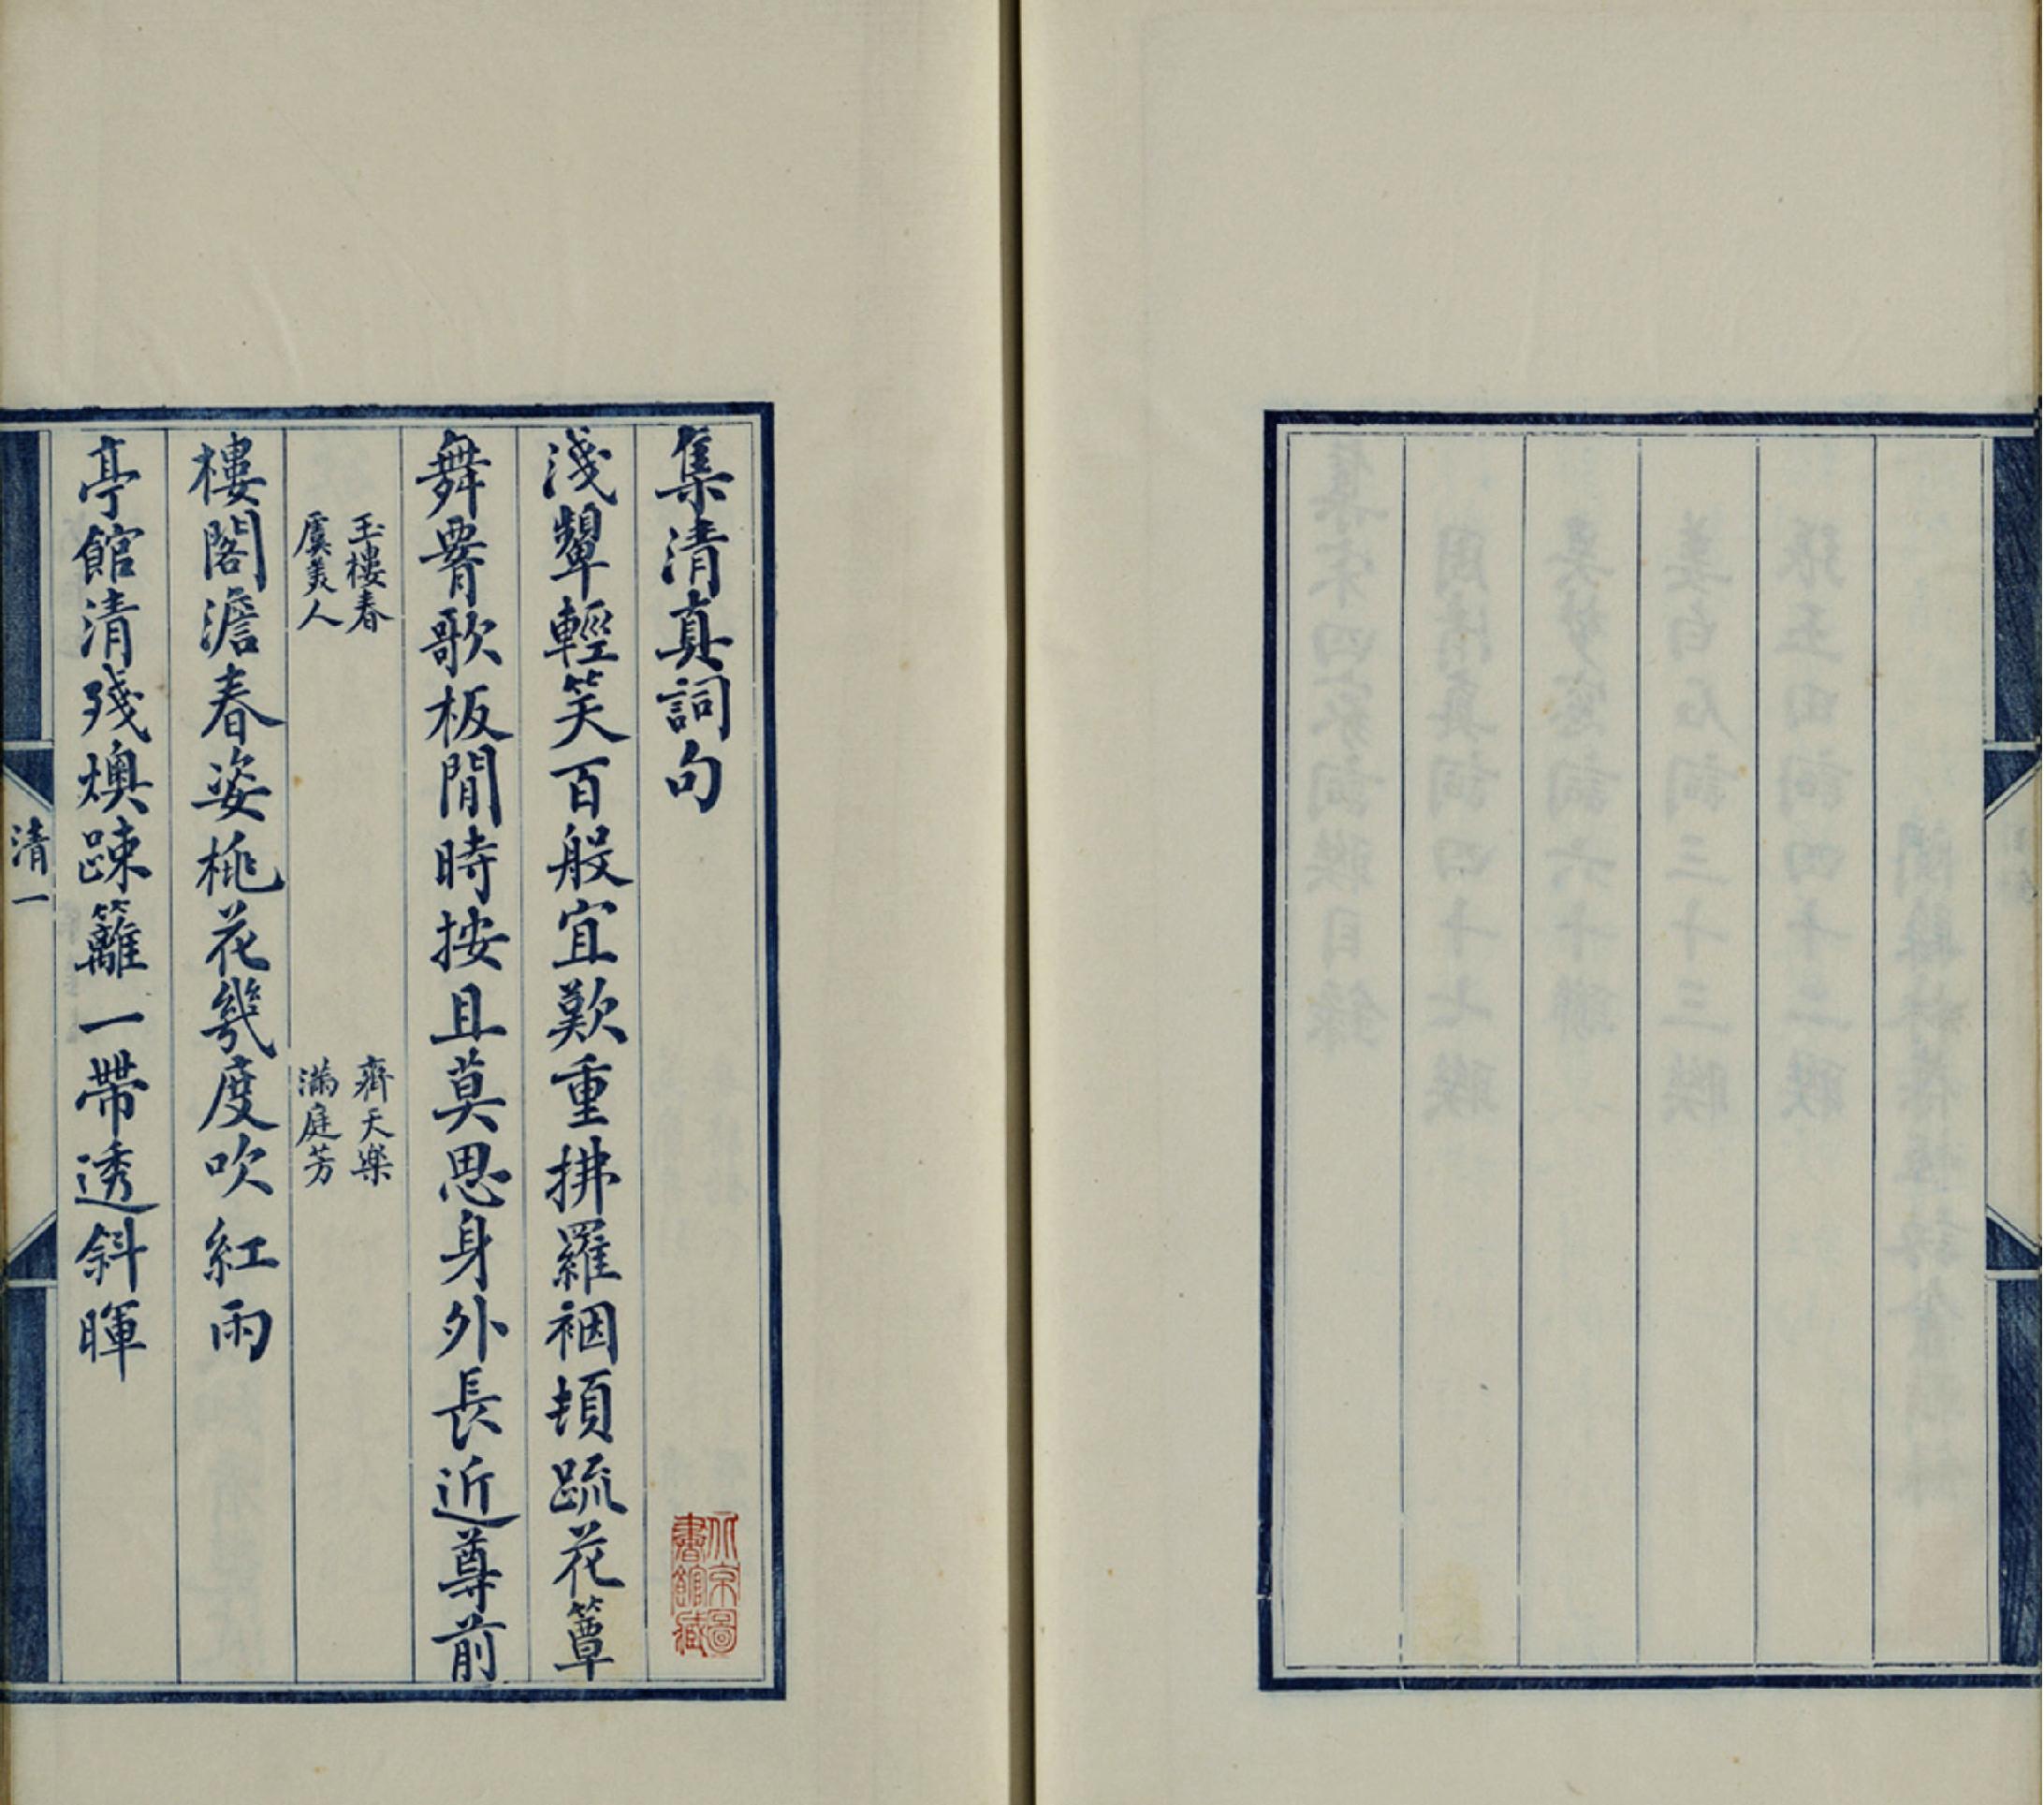 集清真詞句
淺顰輕笑百般宜歎重拂羅裀頓疏花簟
舞腰歌板閒時按且莫思身外長近尊前
玉樓春
虞美人
齊天樂
滿庭芳
樓閣澹春姿桃花幾度吹紅雨
亭館清殘燠踈籬一帶透斜暉
清一
北京圖
書館藏